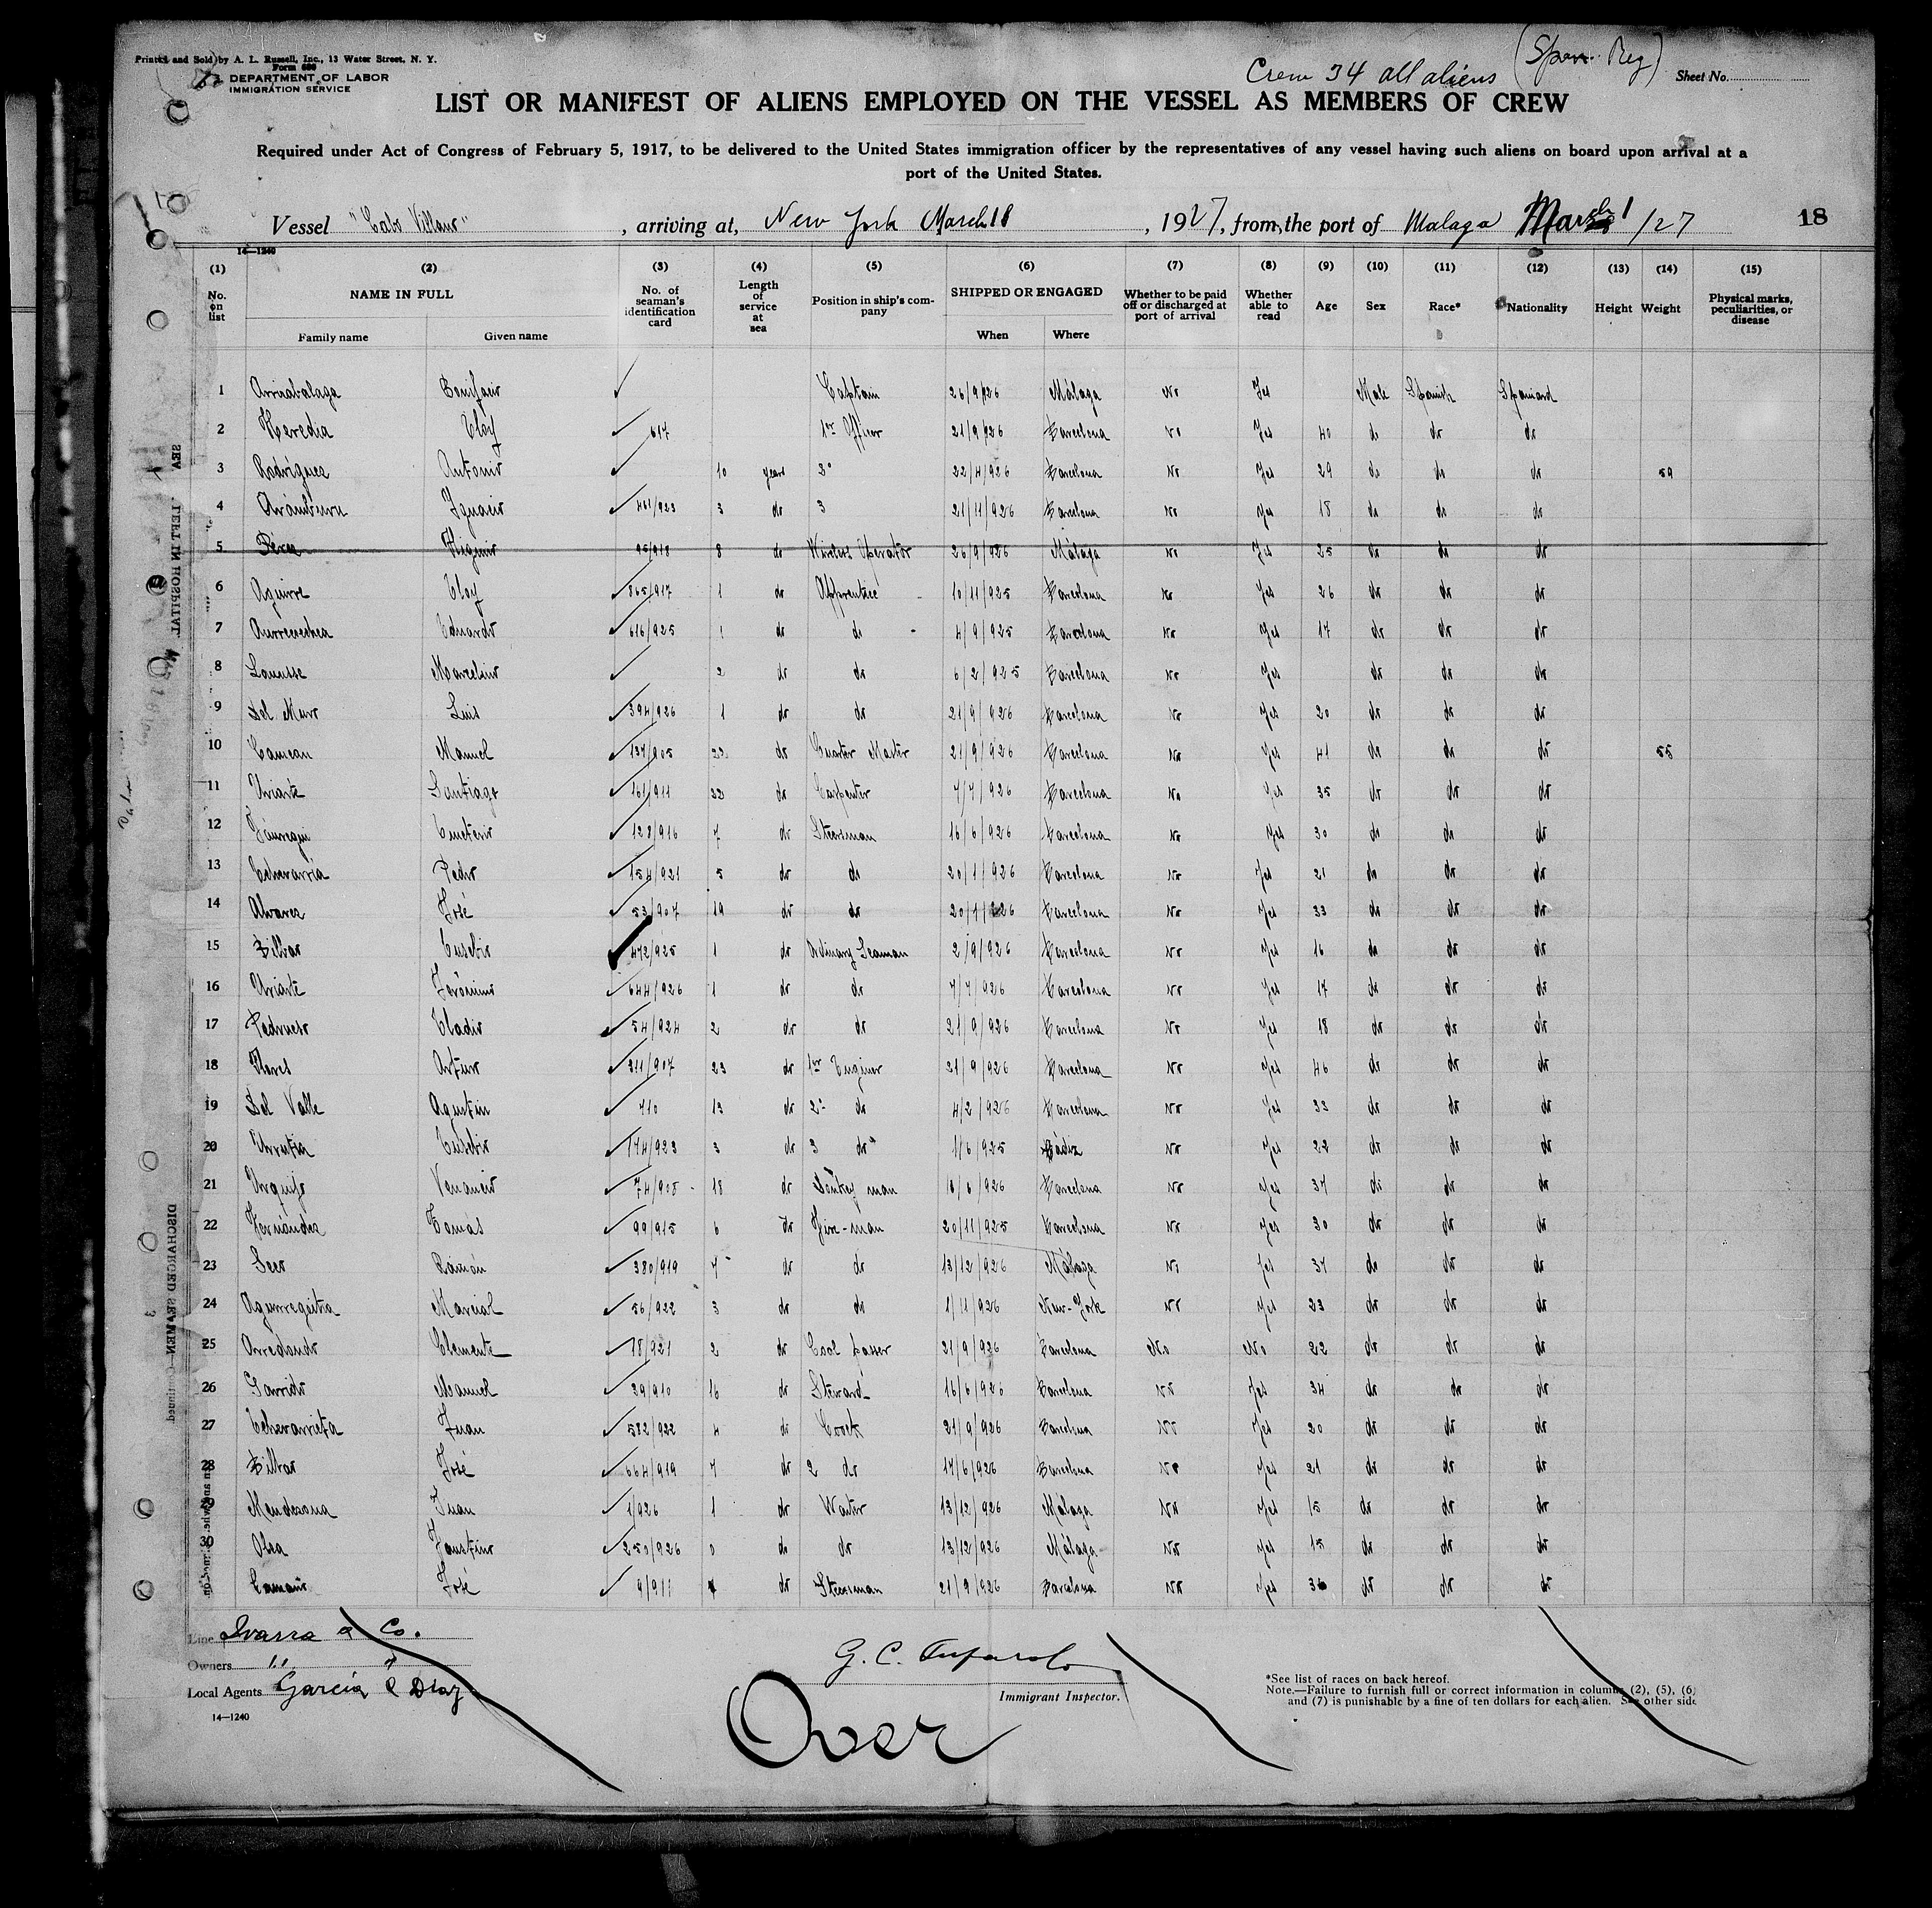 Printed and Sold by A. L. Russell, Inc., 13 Water Street, N. Y.
Form 680
DEPARTMENT OF LABOR
IMMIGRATION SERVICE
Crew 34 all aliens (Span. Reg) Sheet No.
LIST OR MANIFEST OF ALIENS EMPLOYED ON THE VESSEL AS MEMBERS OF CREW
Required under Act of Congress of February 5, 1917, to be delivered to the United States immigration officer by the representatives of any vessel having such aliens on board upon arrival at a
port of the United States.
Vessel "Cabo Villano", arriving at, New York March 18, 1927, from the port of Malaga March 1/27 18
14—1240
(1) (2) (3) (4) (5) (6) (7) (8) (9) (10) (11) (12) (13) (14) (15)
No. on list NAME IN FULL Family name Given name No. of seaman's identification card Length of service at sea Position in ship's company SHIPPED OR ENGAGED When Where Whether to be paid off or discharged at port of arrival Whether able to read Age Sex Race* Nationality Height Weight Physical marks, peculiarities, or disease
1 Arriabalaga Bonifacio Captain 26/9/926 Málaga No Yes Male Spanish Spaniard
2 Heredia Eloy 617 1er Officer 21/9/926 Barcelona No Yes 40 do do do
3 Rodríguez Antonio 10 years 2º 22/4/926 Barcelona No Yes 29 do do do 59
4 Aramburu Ygnacio 461/923 3 do 3 21/11/926 Barcelona No Yes 18 do do do
5 Pérez Higinio 95/918 8 do Wireless Operator 26/9/926 Málaga No Yes 25 do do do
6 Aguirre Eloy 865/917 1 do Apprentice 10/11/925 Barcelona No Yes 26 do do do
7 Aurrecoechea Eduardo 616/925 1 do do 4/9/925 Barcelona No Yes 17 do do do
8 Marcelino 2 do do 6/2/925 Barcelona No Yes do do do
9 Luis 394/926 1 do do 21/9/926 Barcelona No Yes 20 do do do
10 Camean Manuel 137/905 22 do Quarter Master 21/9/926 Barcelona No Yes 41 do do do 55
11 Uriarte Santiago 161/911 22 do Carpenter 7/7/926 Barcelona No Yes 35 do do do
12 Yáuregui Emeterio 128/916 7 do Steersman 16/6/926 Barcelona No Yes 30 do do do
13 Echevarría Pedro 154/921 5 do do 20/1/926 Barcelona No Yes 21 do do do
14 Alvarez José 53/907 19 do do 20/1/926 Barcelona No Yes 33 do do do
15 Bilbao Eusebio 472/925 1 do Ordinary Seaman 2/9/926 Barcelona No Yes 16 do do do
16 Uriarte Jerónimo 644/926 1 do do 7/7/926 Barcelona No Yes 17 do do do
17 Pedruelo Eladio 54/924 2 do do 21/9/926 Barcelona No Yes 18 do do do
18 Flores Arturo 311/907 23 do 1er Engineer 21/9/926 Barcelona No Yes 46 do do do
19 Del Valle Agustín 710 13 do 2º do 4/2/926 Barcelona No Yes 33 do do do
20 Urrutia Eusebio 174/923 3 do 3 do 1/6/925 Cádiz No Yes 22 do do do
21 Urquijo Venancio 74/905 18 do Donkey man 6/6/926 Barcelona No Yes 37 do do do
22 Hernández Tomás 99/915 6 do Fire-man 20/11/925 Barcelona No Yes 30 do do do
23 Seer Ramón 380/919 7 do do 13/12/926 Málaga No Yes 37 do do do
24 Aguirregoitia Marcial 56/922 3 do do 1/11/926 New-York No Yes 23 do do do
25 Arredondo Clemente 18/921 2 do Cool passer 21/9/926 Barcelona No No 22 do do do
26 Garrido Manuel 39/910 16 do Steward 16/6/926 Barcelona No Yes 34 do do do
27 Echevarrieta Juan 582/922 4 do Coock 21/9/926 Barcelona No Yes 20 do do do
28 Bilbao José 664/919 7 do 2 do 17/6/926 Barcelona No Yes 21 do do do
29 Mendezona Juan 1/926 1 do Waiter 13/12/926 Málaga No Yes 15 do do do
30 Olea Faustino 250/926 0 do do 13/12/926 Málaga No Yes 15 do do do
José 9/911 do Steersman 21/9/926 Barcelona No Yes do do do
Line Ybarra & Co.
Owners " "
Local Agents Garcia & Diaz
14—1240
G. C.
Immigrant Inspector.
Over
*See list of races on back hereof.
Note.—Failure to furnish full or correct information in columns (2), (5), (6)
and (7) is punishable by a fine of ten dollars for each alien. See other side
LEFT IN HOSPITAL
DISCHARGED SEAMEN—Continued